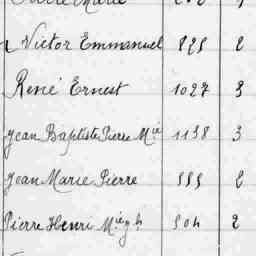 Victor Emmanuel 825 2
René Ernest 1027 3
Jean Baptiste Pierre Mie 1138 3
Jean Marie Pierre 555 2
Pierre Henri 504 2